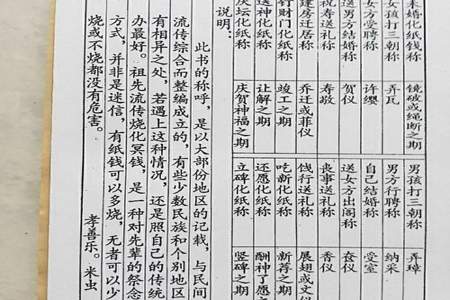 未婚化纸钱称 镜破或绳断之期 男孩打三朝称 弄璋
女孩打三朝称 弄瓦 男方行聘称 纳采
女方受聘称 许缨 自己结婚称 受室
送男方结婚称 贺仪 送女方出阁称 奁仪
祝寿送礼称 寿敬 丧事送礼称 香仪
建房迁居称 乔迁或菲仪 饯行送礼称 展翅或文仪
钉财门化纸称 竣工之期 吃新化纸称 新荐之期
送神化纸称 让解之期 还愿化纸称 酬神了
庆坛化纸称 庆贺神福之期 立碑化纸称 竖碑之期
说明：
此书的称呼，是以大部份地区的记载，与民间
流传综合而整编成立的，有些少数民族和个别地区
有相异之处，若遇上这种情况，还是照自己的传统
办最好。祖先流传烧化冥钱，是一种对先辈的祭念
方式，并非是迷信，有纸钱可以多烧，无者可以少
烧或不烧都没有危害。
孝善乐。米虫